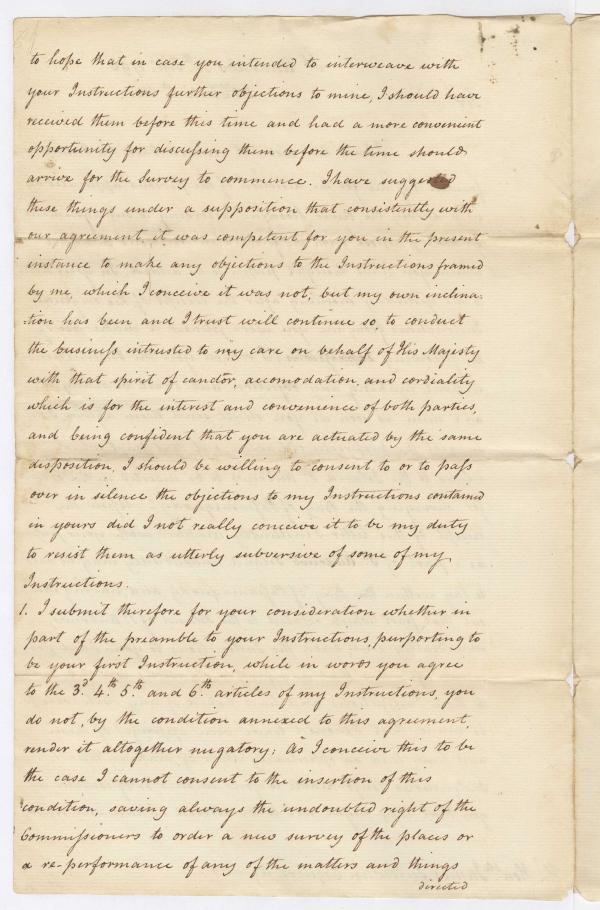 to hope that in case you intended to interweave with
your Instructions further objections to mine, I should have
received them before this time and had a more convenient
opportunity for discussing them before the time should
arrive for the Survey to commence. I have suggested
these things under a supposition that consistently with
our agreement, it was competent for you in the present
instance to make any objections to the Instructions framed
by me, which I conceive it was not, but my own inclina:
:tion has been and I trust will continue so, to conduct
the business intrusted to my care on behalf of His Majesty
with that spirit of candor, accomodation, and cordiality
which is for the interest and convenience of both parties,
and being confident that you are actuated by the same
disposition, I should be willing to consent to or to pass
over in silence the objections to my Instructions contained
in yours did I not really conceive it to be my duty
to resist them as utterly subversive of some of my
Instructions.
1. I submit therefore for your consideration whether in
part of the preamble to your Instructions, purporting to
be your first Instruction, while in words you agree
to the 3.d 4.th 5.th and 6.th articles of my Instructions, you
do not, by the condition annexed to this agreement,
render it altogether nugatory; As I conceive this to be
the case I cannot consent to the insertion of this
condition, saving always the undoubted right of the
Commissioners to order a new survey of the places or
a re-performance of any of the matters and things
directed